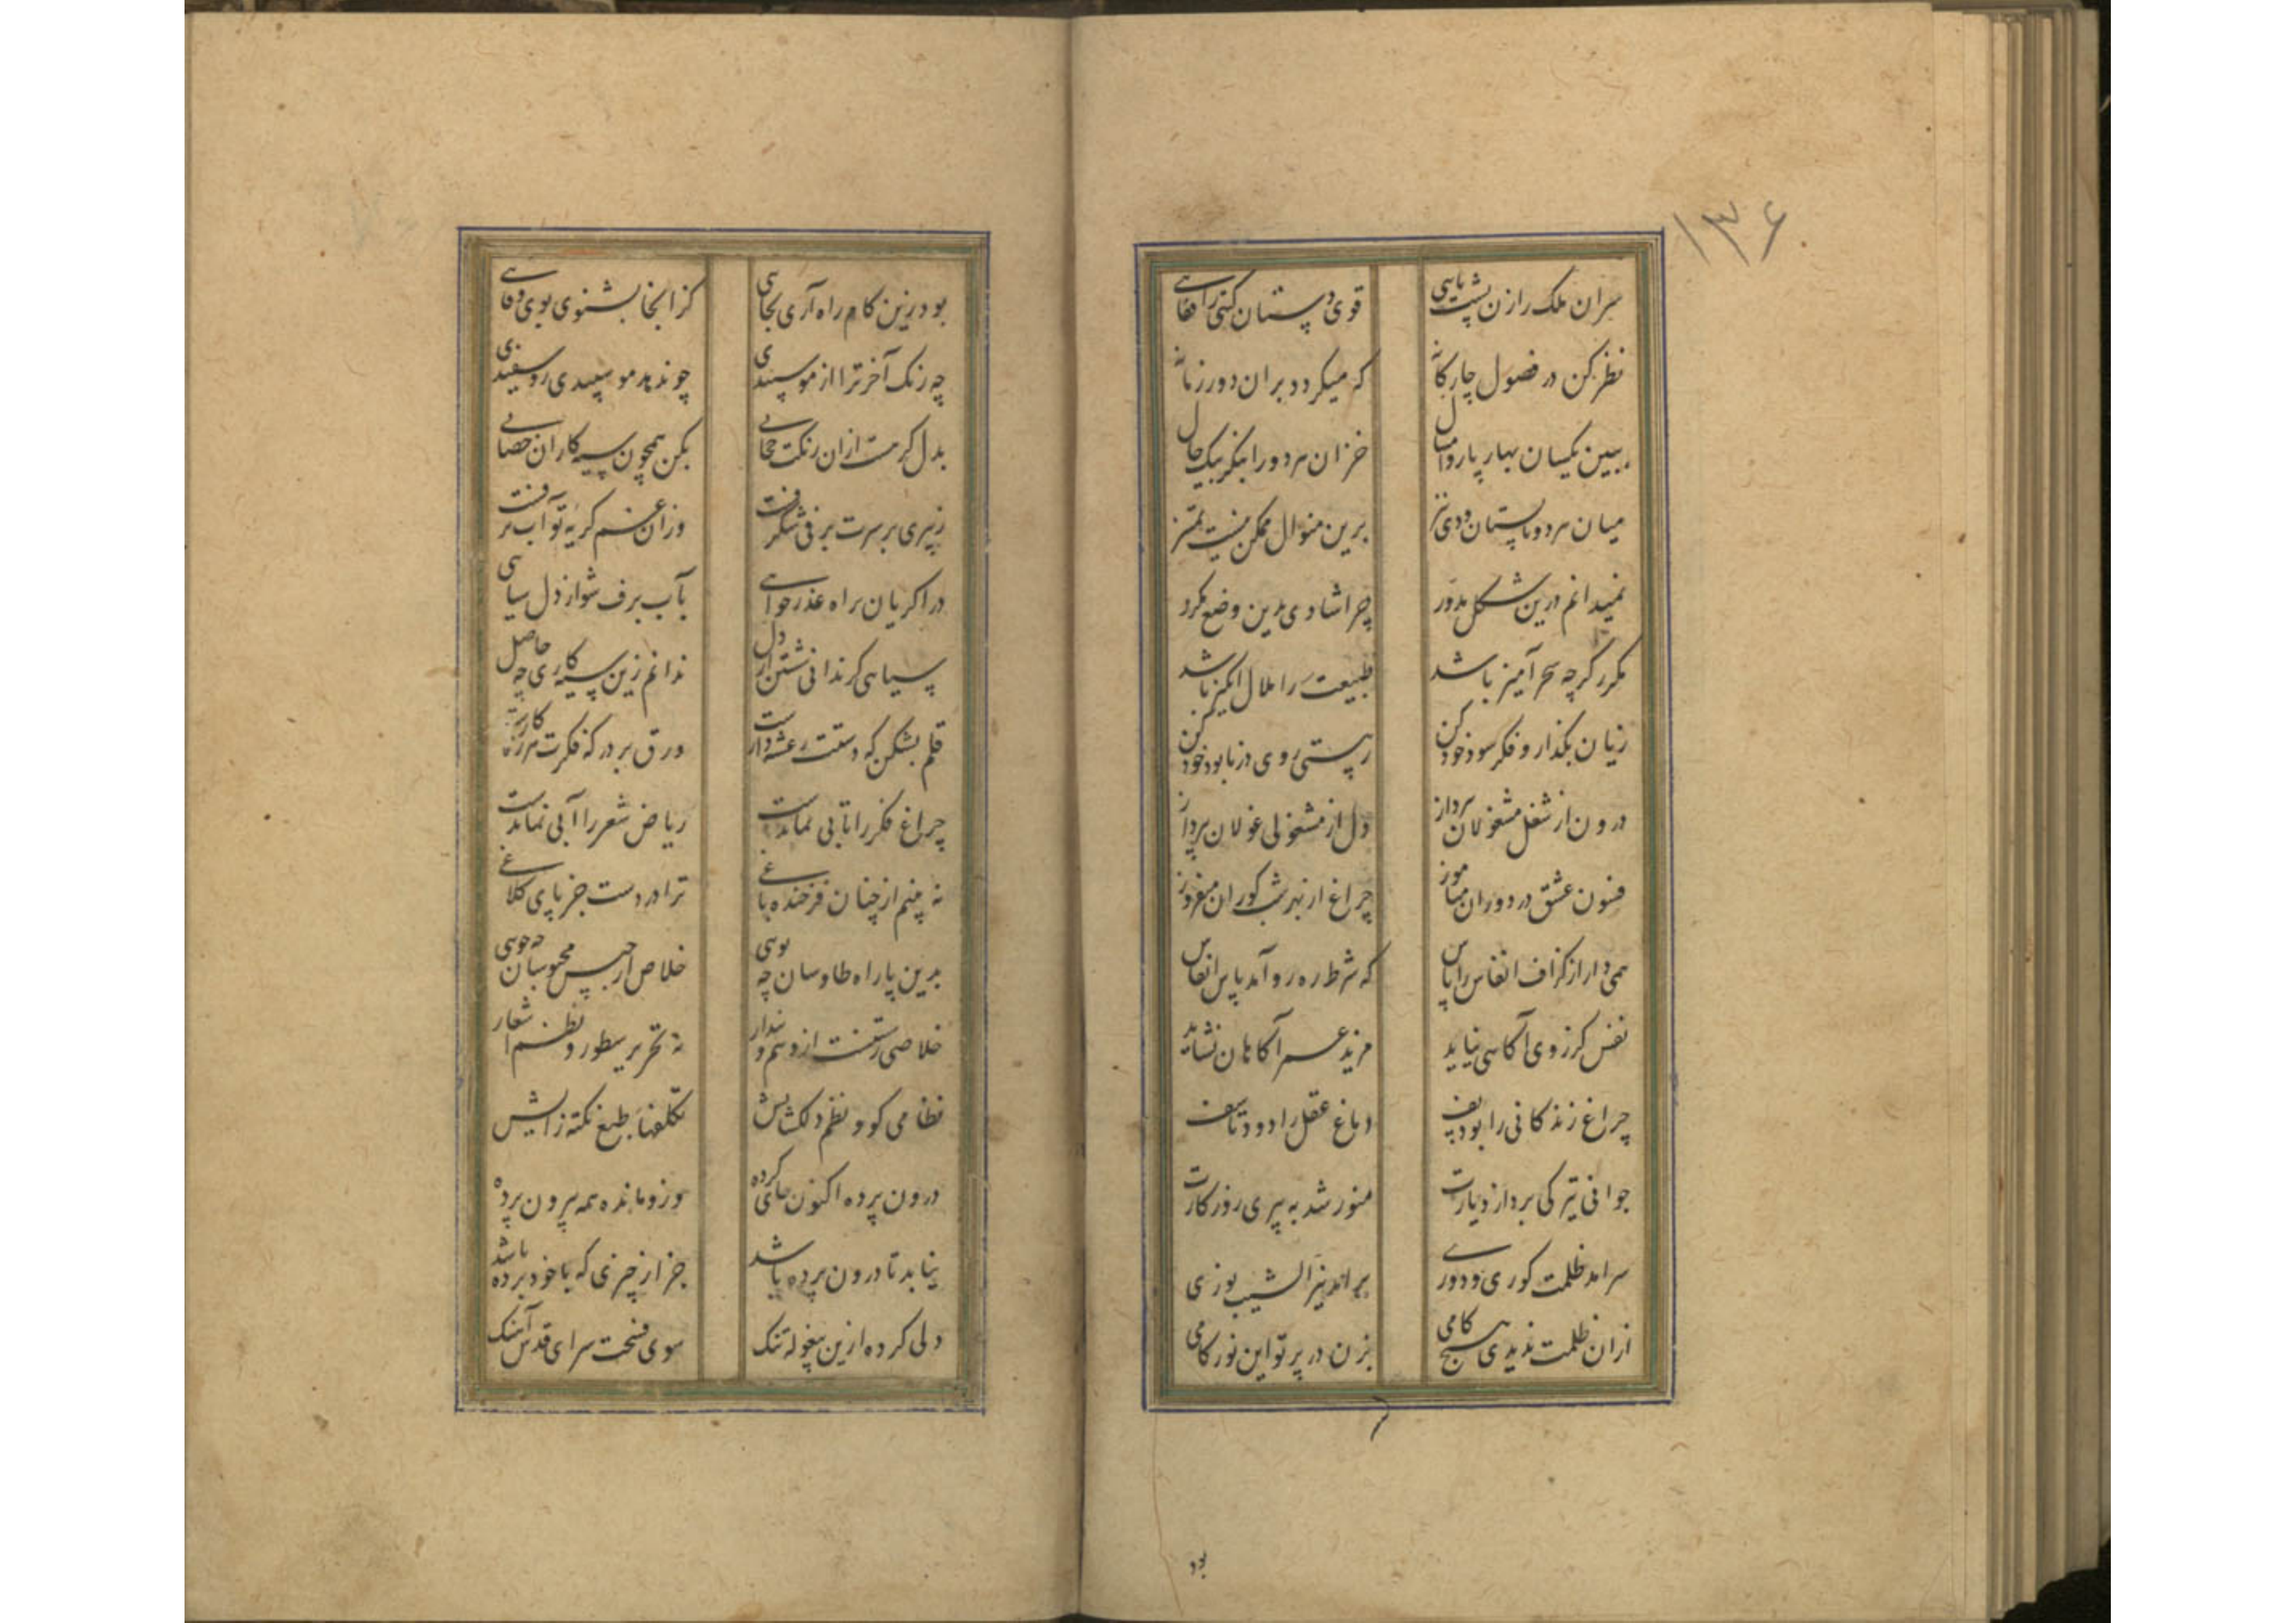 ۱۳۶
سران ملک را زن پشت پاسی قوی دستان گیتی را قفایی
نظر کن در فصول چارگانه که میگردد بر آن دور زمانه
ببین یکسان بهار پار و امسال خزان هر دو را بنگر بیک حال
میان هر دو تابستان و دی نیز برین منوال ممکن نیست تمییز
نمیدانم درین شکل مدور چرا شادی بدین وضع مکرر
مکرر گرچه سحر آمیز باشد طبیعت را ملال انگیز باشد
زیان بگذار و فکر سود خود کن ز هستی روی در نابود خود کن
درون از شغل مشغولان بپرداز دل از مشغولی غولان بپرداز
فسون عشق در دوران میاموز چراغ از بهر شب کوران میفروز
همی دار از گزاف انفاس را پاس که شرط رهرو آمد پاس انفاس
نفس کز روی آگاهی نیاید مزید عمر آگاهان نشاید
چراغ زندگانی را بود پف دماغ عقل را دود تاسف
جوانی تیرگی برد از دیارت منور شد به پیری روزگارت
سرآمد ظلمت کوری و دوری برآمد نیر الشیب نوری
ازان ظلمت ندیدی هیچ کامی بزن در پرتو این نور کامی
بود
بود زین کام راه آری بجایی کز آنجا بشنوی بوی وفایی
چه رنگ آخر ترا از مو سپیدی چو ندهد مو سپیدی رو سفیدی
بدل گر هست ازان رنگت حجابی بکن همچون سیه کاران خضابی
ز پیری بر سرت برفی شگرفست وزان غم گریه تو آب برفست
درا گریان براه عذر خواهی بآب برف شو از دل سیاهی
سیاهی گر ندانی شستن از دل ندانم زین سیه کاری چه حاصل
قلم بشکن که دستت رعشه دارست ورق بر در که فکرت هرزه کارست
چراغ فکر را تابی نماندست ریاض شعر را آبی نماندست
نه بینم از چنان فرخنده باغی ترا در دست جز پای کلاغی
بدین پا راه طاوسان چه پویی خلاص از حبس محبوسان چه جویی
خلاصی رستنست از وهم و پندار نه تحریر سطور و نظم اشعار
نظامی کو و نظم دلگشایش تکلفهای طبع نکته زایش
درون پرده اکنون جای کرده وزو مانده همه بیرون پرده
نیابد تا درون پرده باشد جز از چیزی که با خود برده باشد
دلی کرده ازین بیغوله تنگ سوی فسحت سرای قدس آهنگ